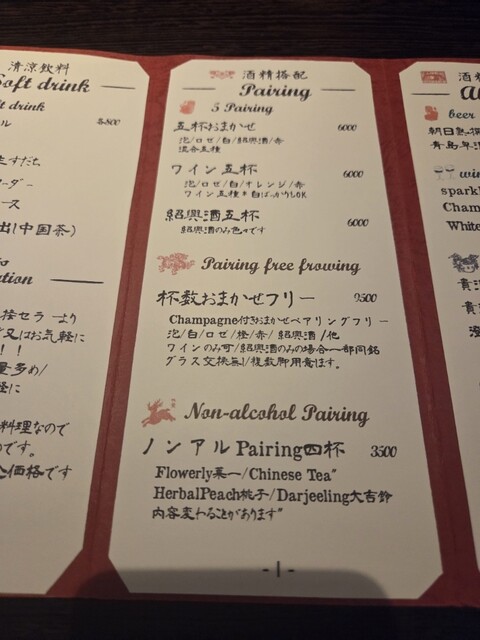 清涼飲料
Soft drink
ft drink
ル
各800
生すだち
ーダー
ース
出し中国茶)
接セラーより
又はお気軽に
！！
量多め/
軽に
料理なので
のです。
価格です
酒精搭配
Pairing
5 Pairing
五杯おまかせ 6000
泡/ロゼ/白/紹興酒/赤
混合五種
ワイン五杯 6000
泡/ロゼ/白/オレンジ/赤
ワイン五種＊白ばっかりOK
紹興酒五杯 6000
紹興酒のみ色々です
Pairing free frowing
杯数おまかせフリー 9500
Champagne付きおまかせペアリングフリー
泡/白/ロゼ/橙/赤/紹興酒/他
ワインのみ可/紹興酒のみの場合一部同銘
グラス交換無し/複数御用意ます。
Non-alcohol Pairing
ノンアルPairing四杯 3500
Flowerly菓一/Chinese Tea"
HerbalPeach桃子/Darjeeling大吉鈴
内容変わることがあります"
-1-
beer
朝日熟
青島
win
spark
Cham
White